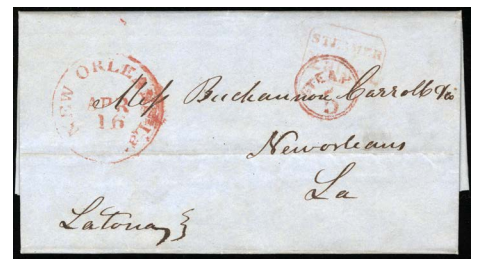 STEAMER
NEW ORLEANS La
APR
16
STEAM
5
Mess Buchannon Carroll & Co
Neworleans
La
Latona